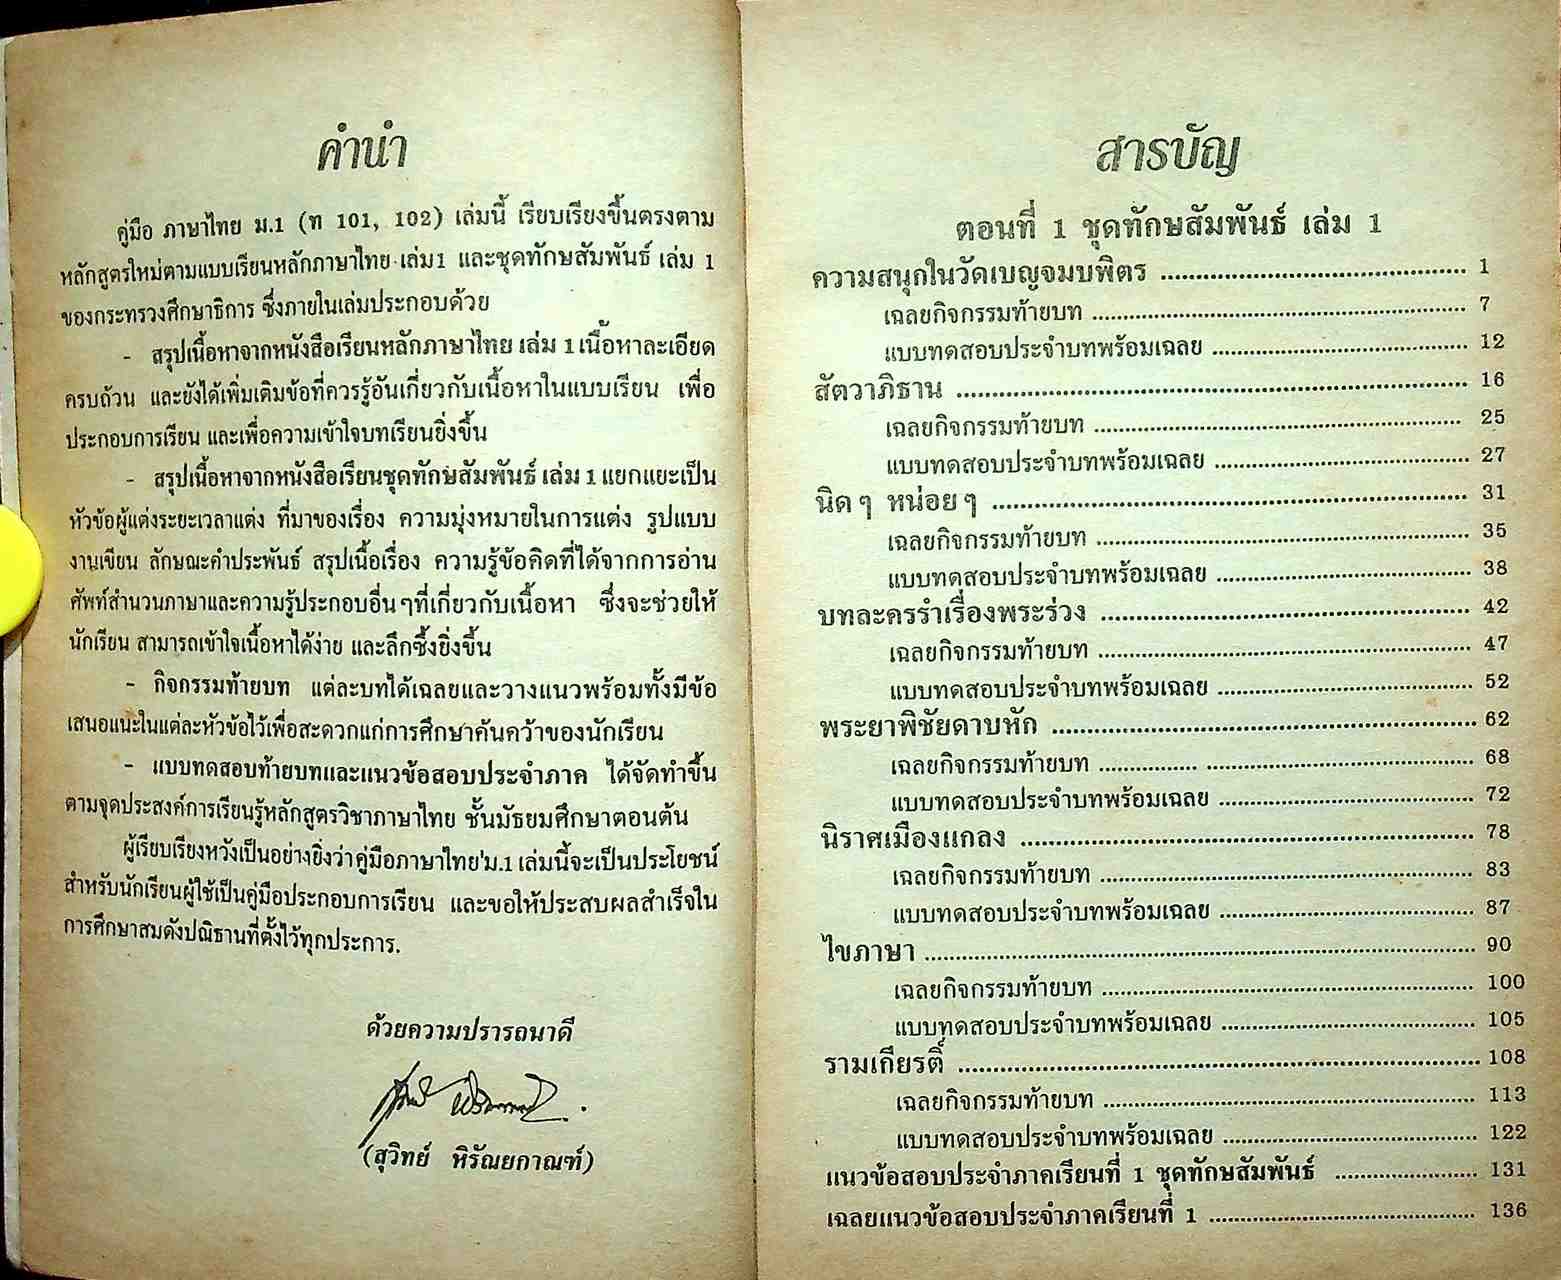 คำนำ
คู่มือ ภาษาไทย ม.1 (ท 101, 102) เล่มนี้ เรียบเรียงขึ้นตรงตาม
หลักสูตรใหม่ตามแบบเรียนหลักภาษาไทย เล่ม1 และชุดทักษสัมพันธ์ เล่ม 1
ของกระทรวงศึกษาธิการ ซึ่งภายในเล่มประกอบด้วย
- สรุปเนื้อหาจากหนังสือเรียนหลักภาษาไทย เล่ม 1 เนื้อหาละเอียด
ครบถ้วน และยังได้เพิ่มเติมข้อที่ควรรู้อันเกี่ยวกับเนื้อหาในแบบเรียน เพื่อ
ประกอบการเรียน และเพื่อความเข้าใจบทเรียนยิ่งขึ้น
- สรุปเนื้อหาจากหนังสือเรียนชุดทักษสัมพันธ์ เล่ม 1 แยกแยะเป็น
หัวข้อผู้แต่งระยะเวลาแต่ง ที่มาของเรื่อง ความมุ่งหมายในการแต่ง รูปแบบ
งานเขียน ลักษณะคำประพันธ์ สรุปเนื้อเรื่อง ความรู้ข้อคิดที่ได้จากการอ่าน
ศัพท์สำนวนภาษาและความรู้ประกอบอื่นๆที่เกี่ยวกับเนื้อหา ซึ่งจะช่วยให้
นักเรียน สามารถเข้าใจเนื้อหาได้ง่าย และลึกซึ้งยิ่งขึ้น
- กิจกรรมท้ายบท แต่ละบทได้เฉลยและวางแนวพร้อมทั้งมีข้อ
เสนอแนะในแต่ละหัวข้อไว้เพื่อสะดวกแก่การศึกษาค้นคว้าของนักเรียน
- แบบทดสอบท้ายบทและแนวข้อสอบประจำภาค ได้จัดทำขึ้น
ตามจุดประสงค์การเรียนรู้หลักสูตรวิชาภาษาไทย ชั้นมัธยมศึกษาตอนต้น
ผู้เรียบเรียงหวังเป็นอย่างยิ่งว่าคู่มือภาษาไทย'ม.1 เล่มนี้จะเป็นประโยชน์
สำหรับนักเรียนผู้ใช้เป็นคู่มือประกอบการเรียน และขอให้ประสบผลสำเร็จใน
การศึกษาสมดังปณิธานที่ตั้งไว้ทุกประการ.
ด้วยความปรารถนาดี
(สุวิทย์ หิรัณยกาณฑ์)
สารบัญ
ตอนที่ 1 ชุดทักษสัมพันธ์ เล่ม 1
ความสนุกในวัดเบญจมบพิตร ........ 1
เฉลยกิจกรรมท้ายบท ........ 7
แบบทดสอบประจำบทพร้อมเฉลย ........ 12
สัตวาภิธาน ........ 16
เฉลยกิจกรรมท้ายบท ........ 25
แบบทดสอบประจำบทพร้อมเฉลย ........ 27
นิด ๆ หน่อย ๆ ........ 31
เฉลยกิจกรรมท้ายบท ........ 35
แบบทดสอบประจำบทพร้อมเฉลย ........ 38
บทละครรำเรื่องพระร่วง ........ 42
เฉลยกิจกรรมท้ายบท ........ 47
แบบทดสอบประจำบทพร้อมเฉลย ........ 52
พระยาพิชัยดาบหัก ........ 62
เฉลยกิจกรรมท้ายบท ........ 68
แบบทดสอบประจำบทพร้อมเฉลย ........ 72
นิราศเมืองแกลง ........ 78
เฉลยกิจกรรมท้ายบท ........ 83
แบบทดสอบประจำบทพร้อมเฉลย ........ 87
ไขภาษา ........ 90
เฉลยกิจกรรมท้ายบท ........ 100
แบบทดสอบประจำบทพร้อมเฉลย ........ 105
รามเกียรติ์ ........ 108
เฉลยกิจกรรมท้ายบท ........ 113
แบบทดสอบประจำบทพร้อมเฉลย ........ 122
แนวข้อสอบประจำภาคเรียนที่ 1 ชุดทักษสัมพันธ์ ........ 131
เฉลยแนวข้อสอบประจำภาคเรียนที่ 1 ........ 136